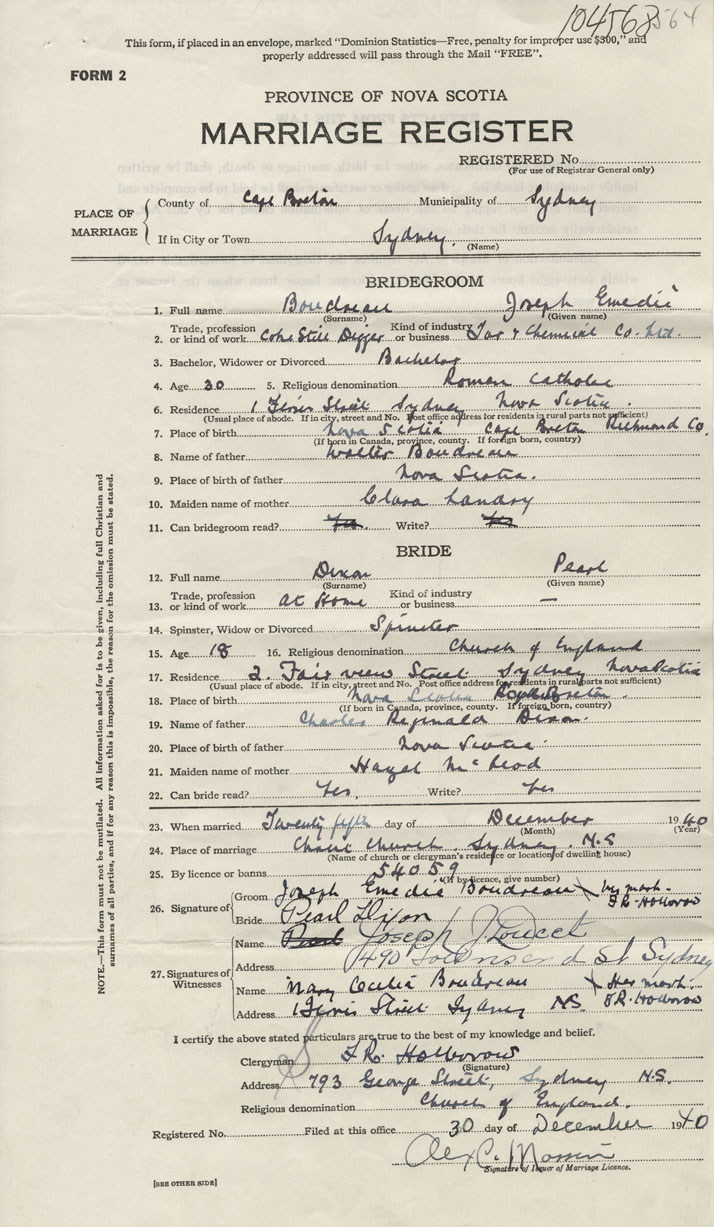 104568 564
This form, if placed in an envelope, marked "Dominion Statistics—Free, penalty for improper use $300," and
properly addressed will pass through the Mail "FREE".
FORM 2
PROVINCE OF NOVA SCOTIA
MARRIAGE REGISTER
REGISTERED No.
(For use of Registrar General only)
PLACE OF MARRIAGE
County of Cape Breton Municipality of Sydney
If in City or Town Sydney.
(Name)
BRIDEGROOM
1. Full name Boudreau Joseph Emedié
(Surname) (Given name)
2. Trade, profession or kind of work Coke Still Digger Kind of industry or business Tar & Chemical Co. Ltd.
3. Bachelor, Widower or Divorced Bachelor
4. Age 30 5. Religious denomination Roman Catholic
6. Residence 1 Street Sydney Nova Scotia.
(Usual place of abode. If in city, street and No. Post office address for residents in rural parts not sufficient)
7. Place of birth Nova Scotia Cape Breton Richmond Co.
(If born in Canada, province, county. If foreign born, country)
8. Name of father Walter Boudreau
9. Place of birth of father Nova Scotia.
10. Maiden name of mother Clara Landry
11. Can bridegroom read? Yes. Write? Yes
BRIDE
12. Full name Dixon Pearl
(Surname) (Given name)
13. Trade, profession or kind of work at Home Kind of industry or business —
14. Spinster, Widow or Divorced Spinster
15. Age 18 16. Religious denomination Church of England
17. Residence 2. Fairview Street Sydney Nova Scotia
(Usual place of abode. If in city, street and No. Post office address for residents in rural parts not sufficient)
18. Place of birth Nova Scotia Cape Breton.
(If born in Canada, province, county. If foreign born, country)
19. Name of father Charles Reginald Dixon.
20. Place of birth of father Nova Scotia.
21. Maiden name of mother Hazel McLeod
22. Can bride read? Yes. Write? Yes
23. When married Twenty fifth day of December 1940
(Month) (Year)
24. Place of marriage Christ Church, Sydney. N.S
(Name of church or clergyman's residence or location of dwelling house)
25. By licence or banns 54059
(If by licence, give number)
26. Signature of
Groom Joseph Emedié Boudreau his mark. F.R. Holborow
Bride Pearl Dixon
27. Signatures of Witnesses
Name Pearl Joseph J Doucet
Address 490 Townsend St Sydney
Name Mary Cecilia Boudreau Her mark. F.R. Holborow
Address 1 Street Sydney NS.
I certify the above stated particulars are true to the best of my knowledge and belief.
Clergyman F.R. Holborow
(Signature)
Address 793 George Street, Sydney N.S.
Religious denomination Church of England.
Registered No. Filed at this office 30 day of December 1940
Alex C.
Signature of Issuer of Marriage Licence.
[SEE OTHER SIDE]
NOTE.—This form must not be mutilated. All information asked for is to be given, including full Christian and
surnames of all parties, and if for any reason this is impossible, the reason for the omission must be stated.